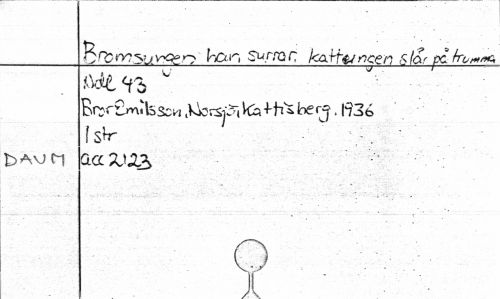 Bromsungen han surrar. kattungen slår på trumma
Noll 43
Bror Emilsson, Norsjö, Kattisberg. 1936
1 str
DAUM acc 2123